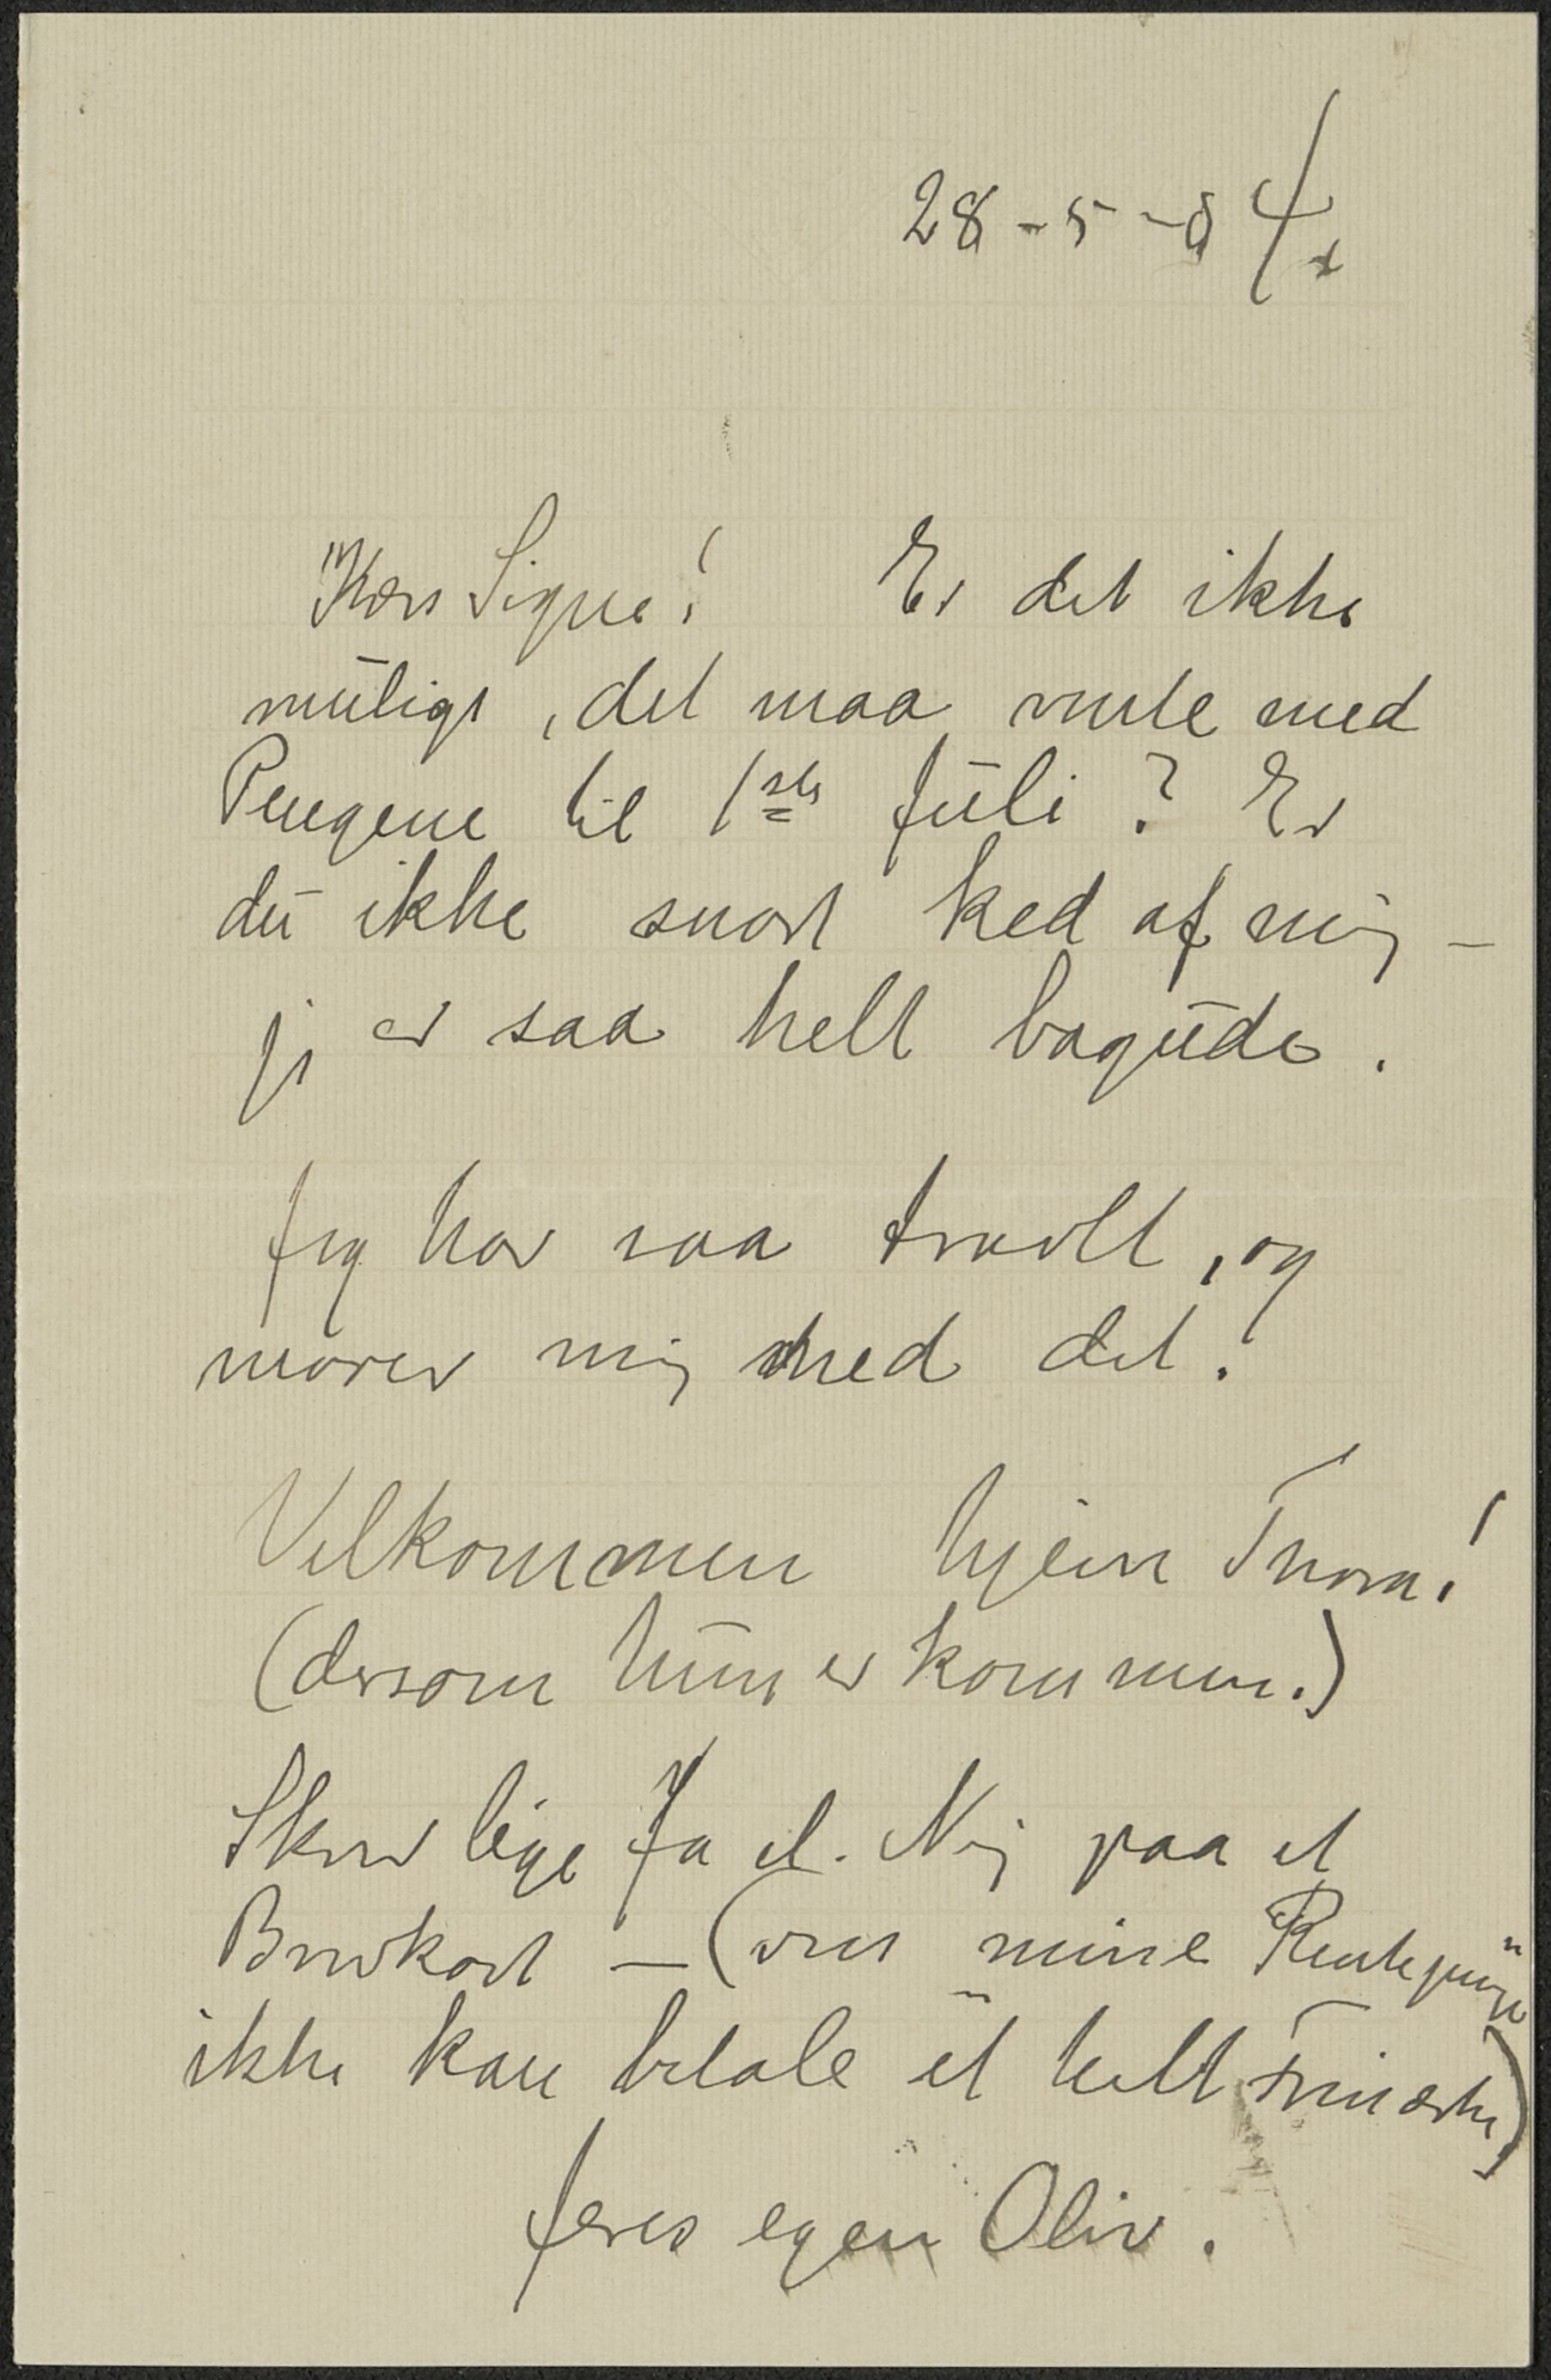 28-5-84
Kære Signe! Er det ikke
muligt, det maa vente med
Pengene til 1ste Juli? Er
du ikke snart ked af mig –
je er saa helt bagude.
Jeg har saa travlt, og
morer mig med det!
Velkommen hjem Thora!
(dersom hun er kommen.)
Skriv lige Ja el. Nej paa et
Brevkort – (om mine Rentepenge
ikke kan betale et helt
Jeres egen Oliv.